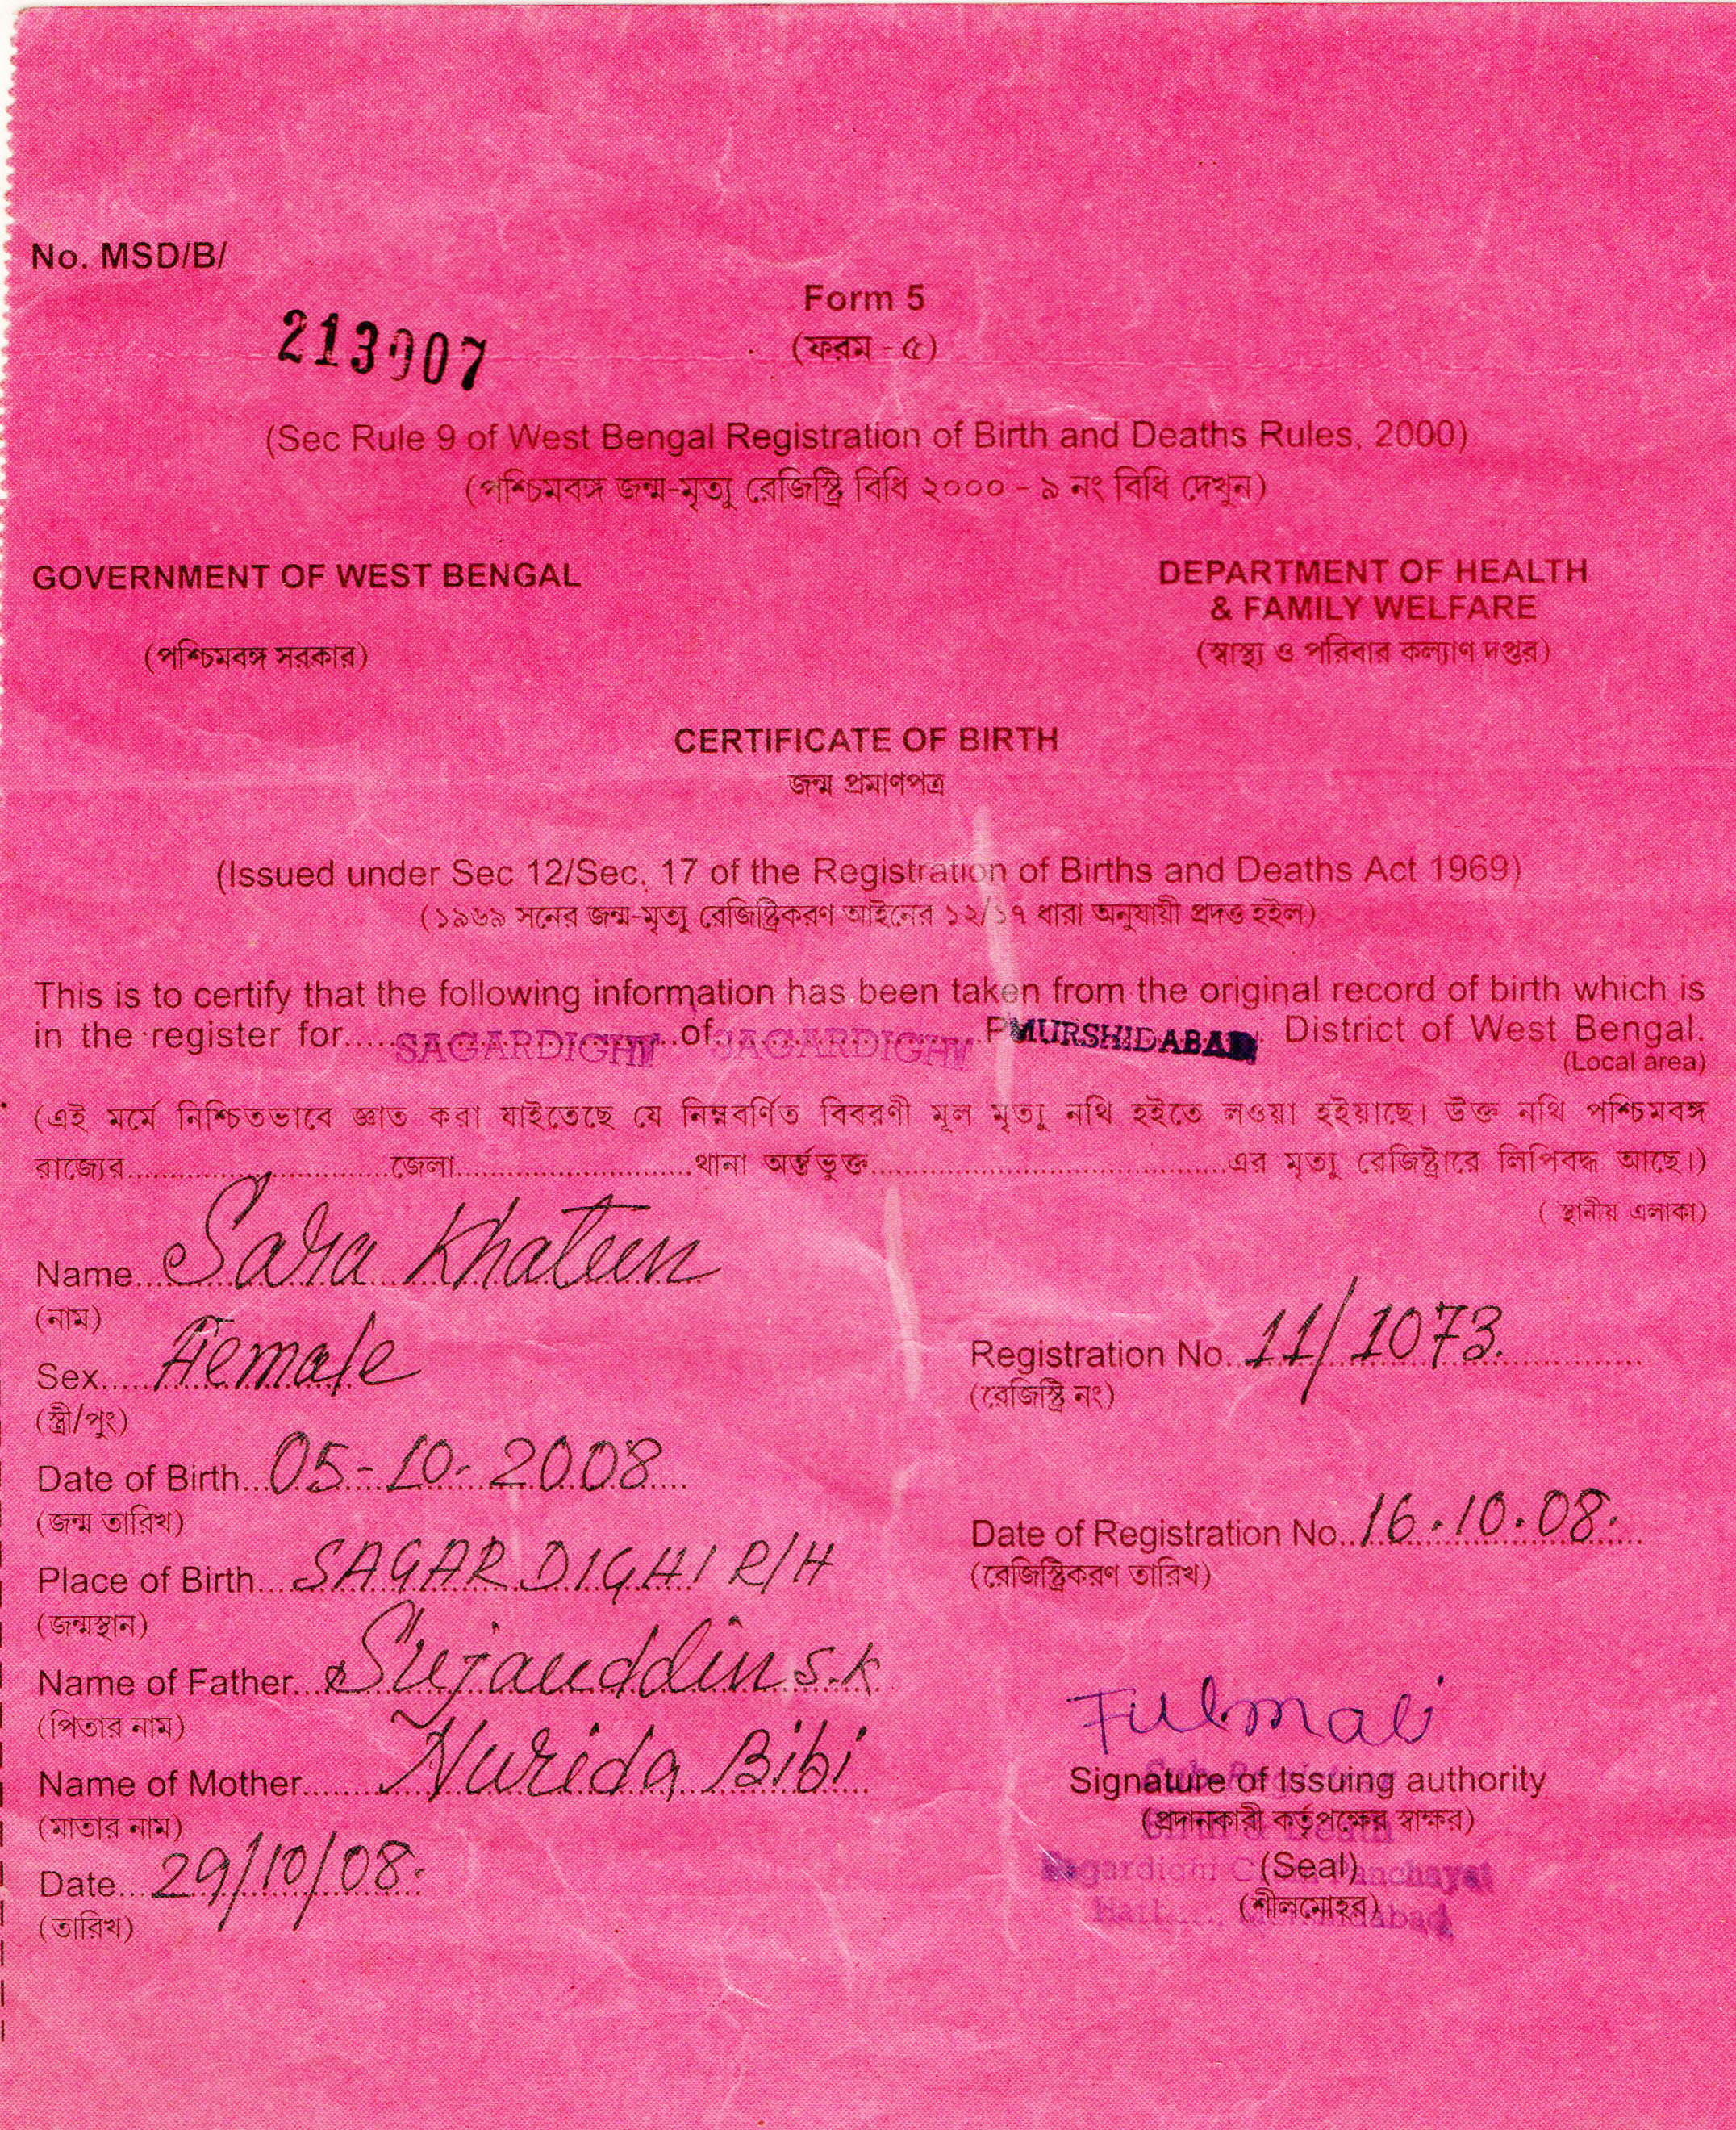 No. MSD/B/
213907
Form 5
(ফরম - ৫)
(Sec Rule 9 of West Bengal Registration of Birth and Deaths Rules, 2000)
(পশ্চিমবঙ্গ জন্ম-মৃত্যু রেজিস্ট্রি বিধি ২০০০ - ৯ নং বিধি দেখুন)
GOVERNMENT OF WEST BENGAL
(পশ্চিমবঙ্গ সরকার)
DEPARTMENT OF HEALTH
& FAMILY WELFARE
(স্বাস্থ্য ও পরিবার কল্যাণ দপ্তর)
CERTIFICATE OF BIRTH
জন্ম প্রমাণপত্র
(Issued under Sec 12/Sec. 17 of the Registration of Births and Deaths Act 1969)
(১৯৬৯ সনের জন্ম-মৃত্যু রেজিষ্ট্রিকরণ আইনের ১২/১৭ ধারা অনুযায়ী প্রদত্ত হইল)
This is to certify that the following information has been taken from the original record of birth which is
in the register for....SAGARDIGHI..of..SAGARDIGHI..P MURSHIDABAD District of West Bengal.
(Local area)
(এই মর্মে নিশ্চিতভাবে জ্ঞাত করা যাইতেছে যে নিম্নবর্ণিত বিবরণী মূল মৃত্যু নথি হইতে লওয়া হইয়াছে। উক্ত নথি পশ্চিমবঙ্গ
রাজ্যের..............................জেলা..........................থানা অর্ন্তভুক্ত........................................এর মৃত্যু রেজিষ্ট্রারে লিপিবদ্ধ আছে।)
(স্থানীয় এলাকা)
Name...Sara Khatun
(নাম)
Sex.....Female
(স্ত্রী/পুং)
Registration No..11/1073.
(রেজিস্ট্রি নং)
Date of Birth...05-10-2008
(জন্ম তারিখ)
Date of Registration No..16.10.08.
(রেজিস্ট্রিকরণ তারিখ)
Place of Birth...SAGARDIGHI R/H
(জন্মস্থান)
Name of Father...Sujauddin S.K
(পিতার নাম)
Name of Mother.......Nurida Bibi
(মাতার নাম)
Date...29/10/08.
(তারিখ)
Fulmali
Signature of Issuing authority
(প্রদানকারী কর্তৃপক্ষের স্বাক্ষর)
(Seal)
(শীলমোহর)
Sagardighi Panchayat